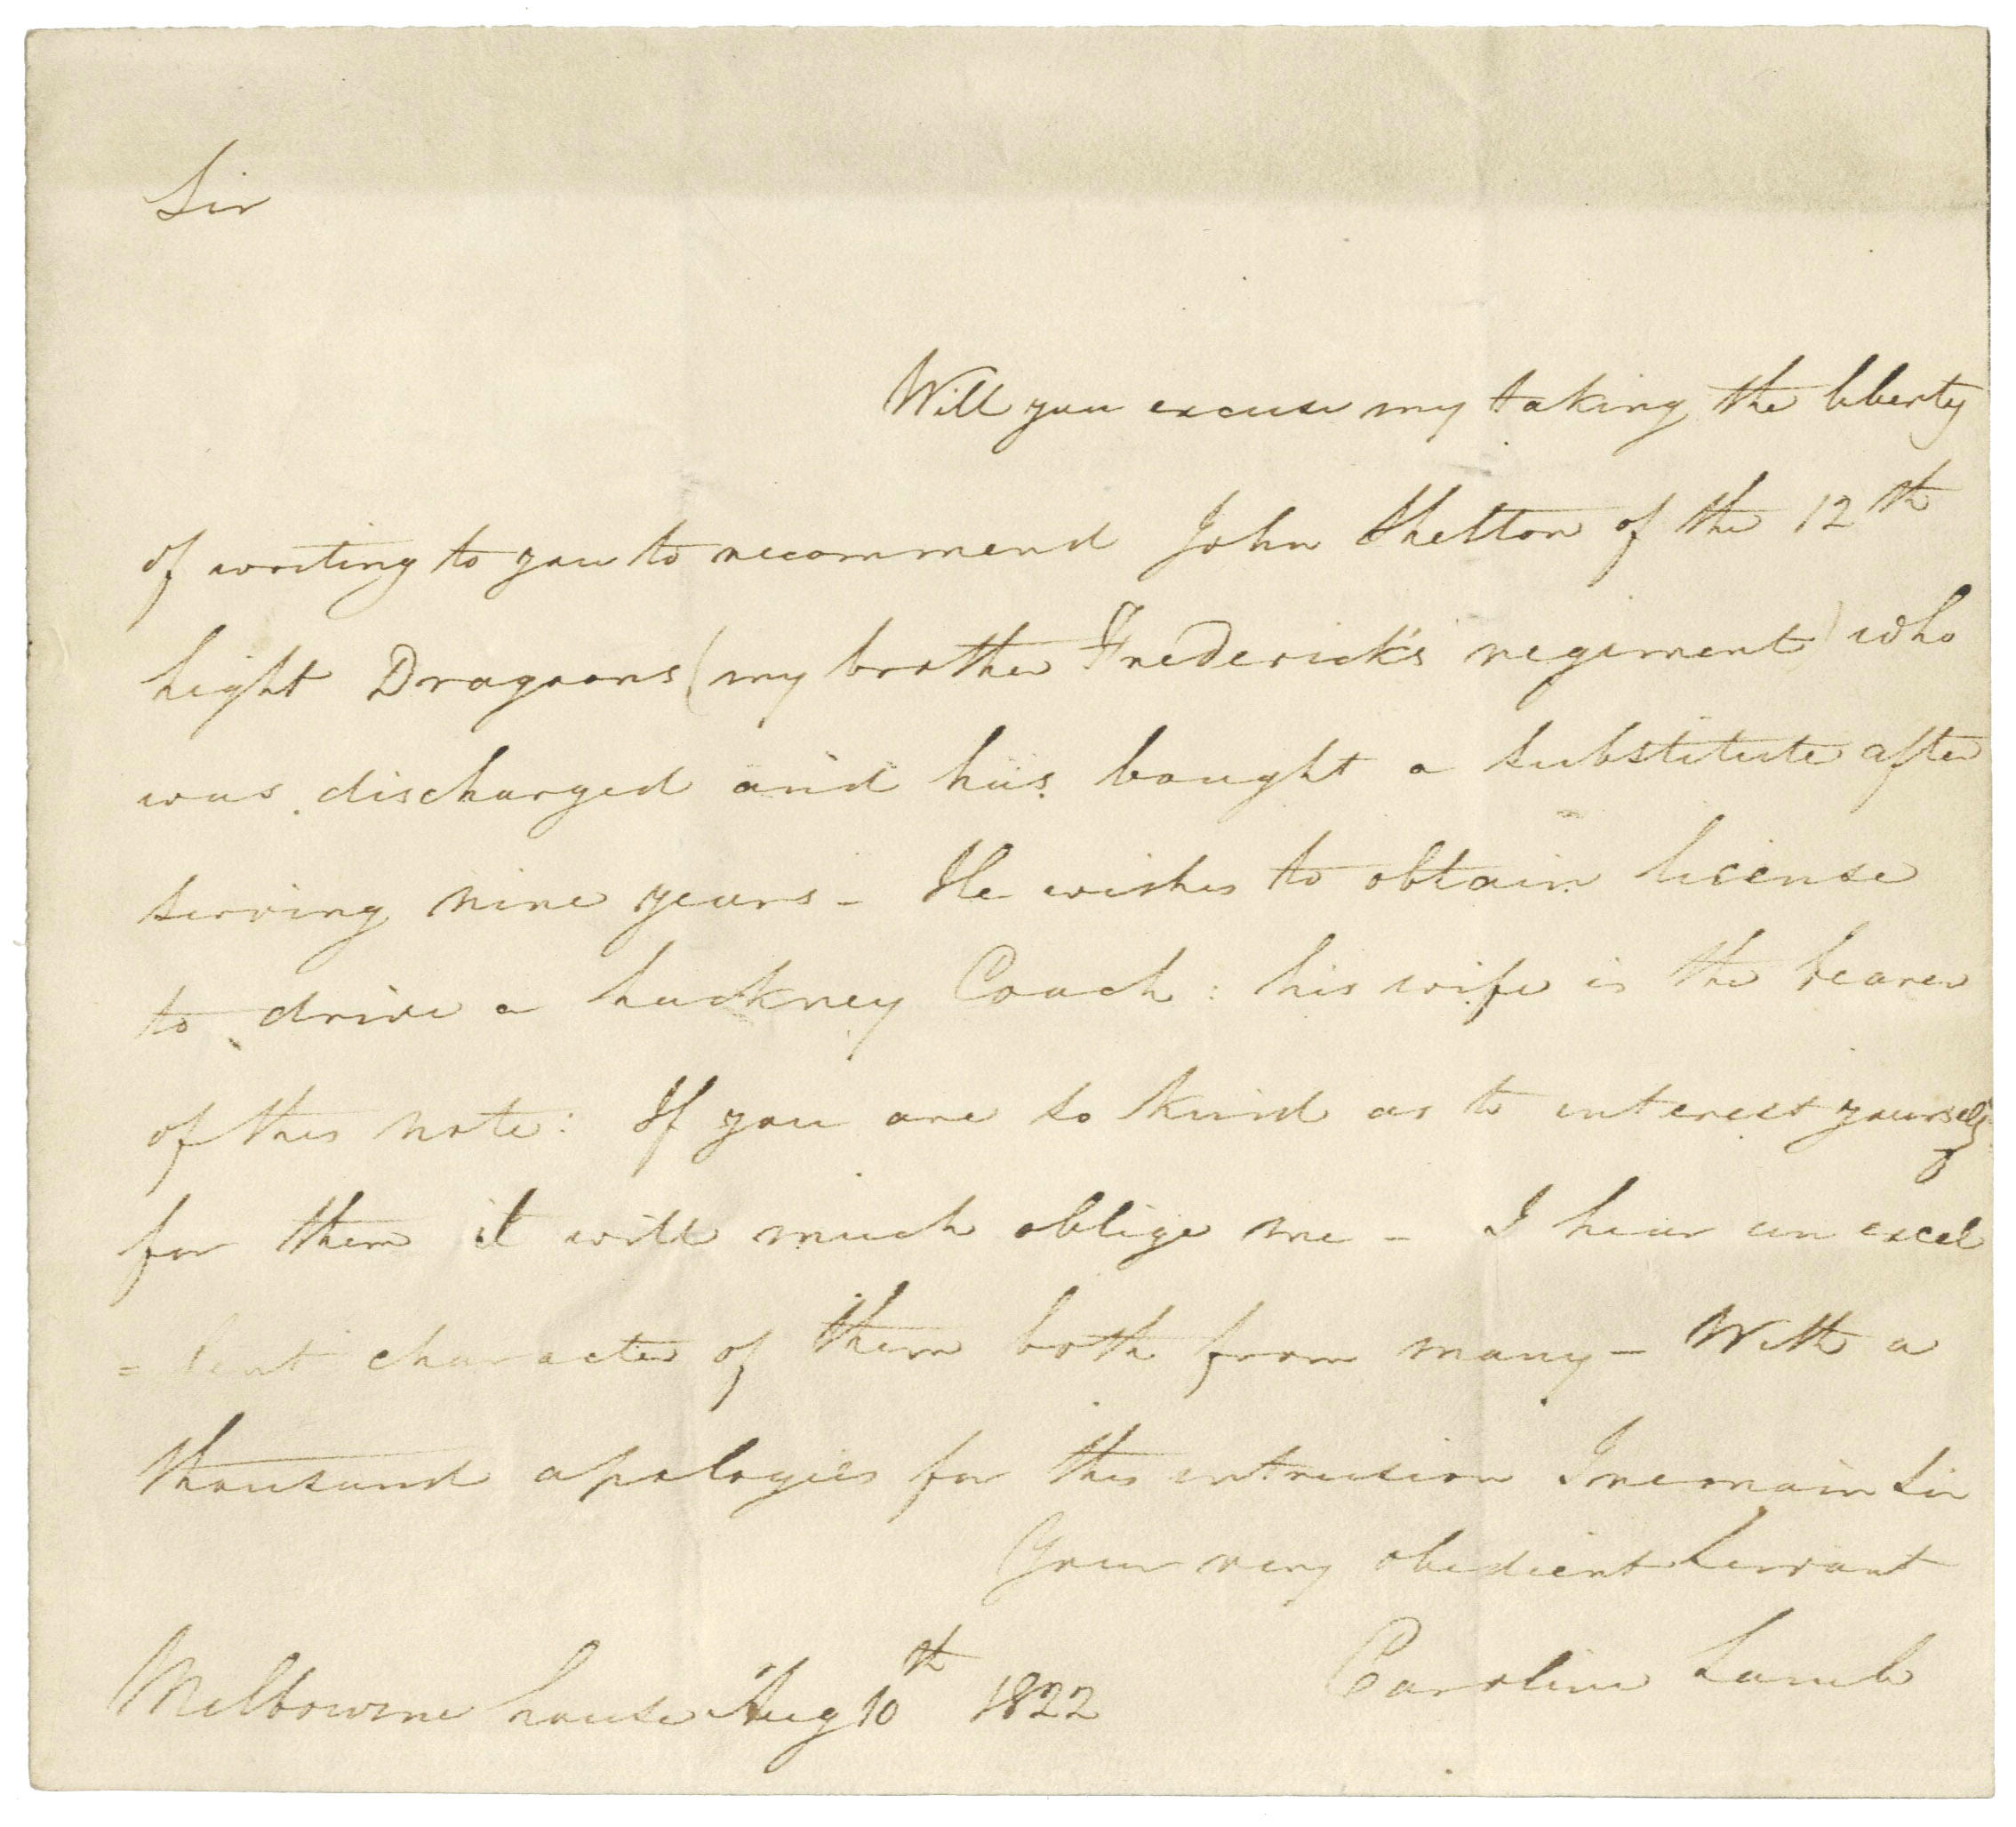 Sir
Will you excuse my taking the liberty
of writing to you to recommend John Shelton of the 12th
light Dragoons (my brother Frederick's regiment) who
was discharged and has bought a substitute after
serving nine years - He wishes to obtain license
to drive a hackney Coach : his wife is the bearer
of this note : If you are so kind as to interest yourself
for them it will much oblige me - I hear an excel
=lent character of them both from many - With a
thousand apologies for this intrusion I remain Sir
Your very obedient Servant
Caroline Lamb
Melbourne house Aug 10th 1822